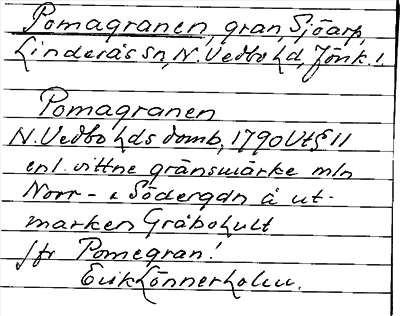 Pomagranen, gran, Sjöarp,
Linderås sn, N. Vedbo hd, Jönk. l.
Pomagranen
N. Vedbo hds domb, 1790 Vt § 11
enl. vittne gränsmärke mln
Norr- & Södergdn å ut-
marken Gråbohult
jfr Pomegran!
Erik Lönnerholm.